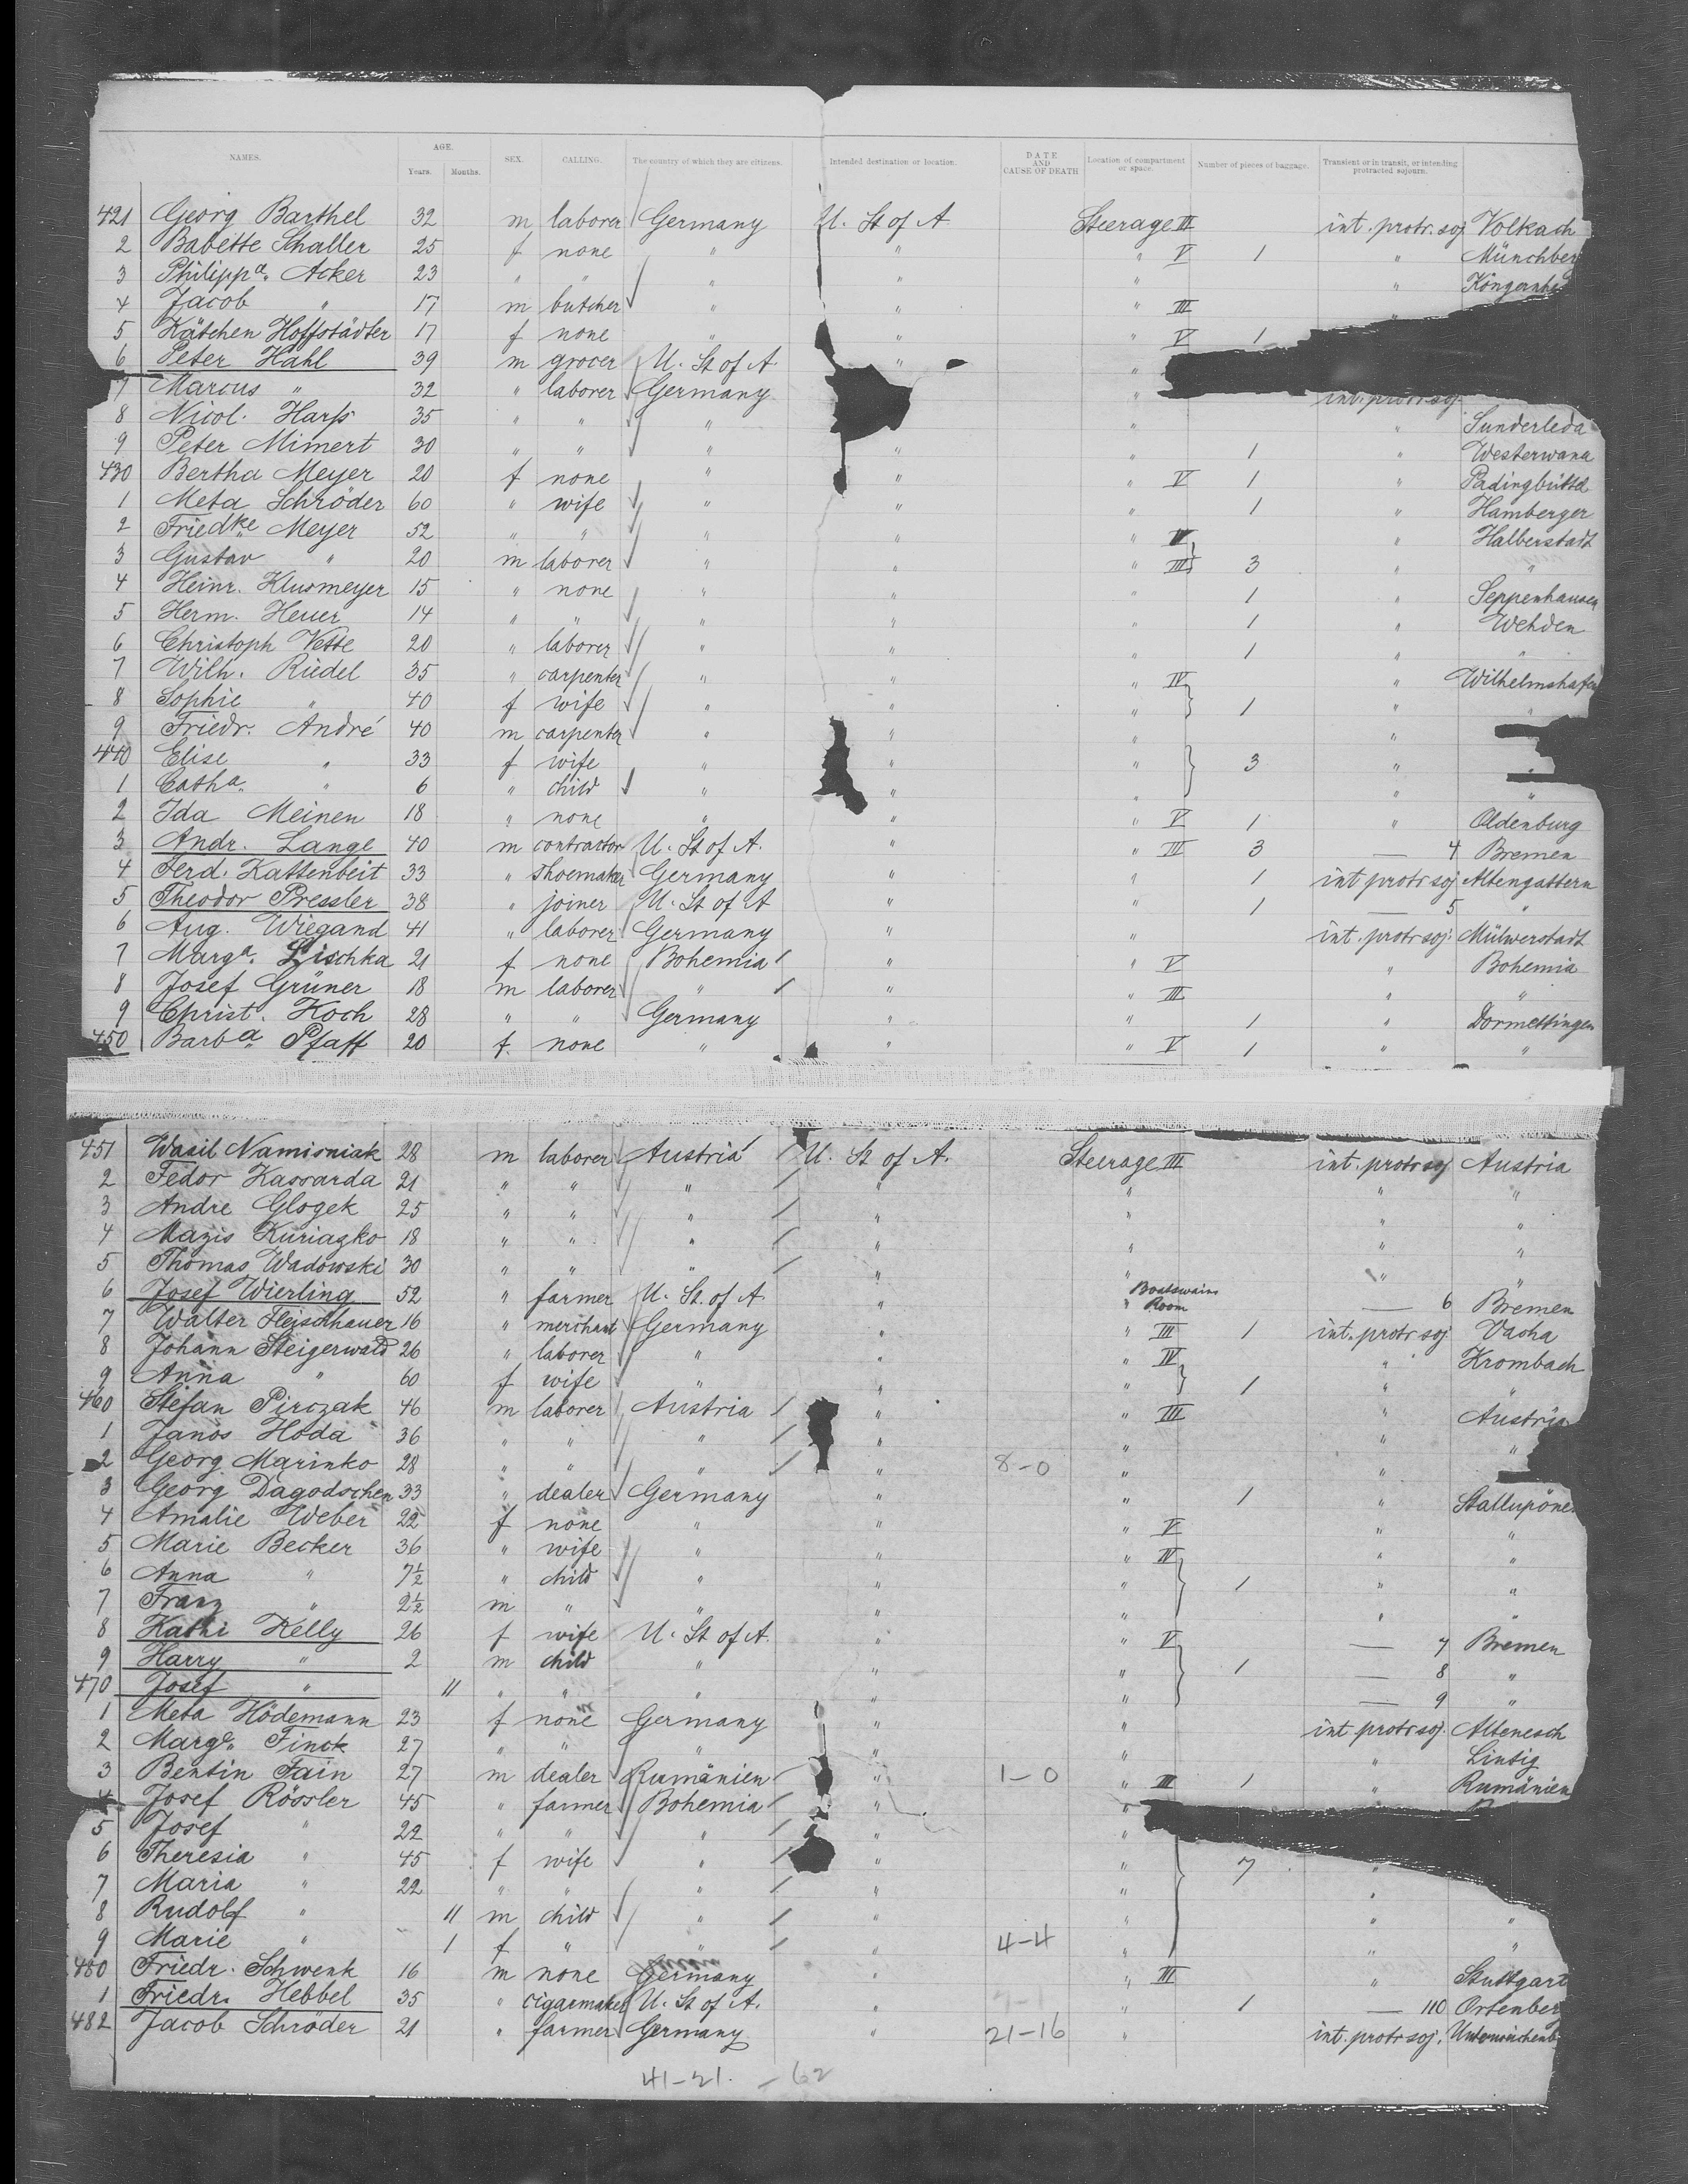 NAMES. AGE. Years. Months. SEX. CALLING. The country of which they are citizens. Intended destination or location. DATE AND CAUSE OF DEATH Location of compartment or space. Number of pieces of baggage. Transient or in transit, or intending protracted sojourn.
421 Georg Barthel 32 m laborer Germany U. St of A. Steerage III int. protr. soj Volkach
2 Babette Schaller 25 f none " " " V 1 " Münchber
3 Philippa. Acker 23 " " " " " "
4 Jacob " 17 m butcher " " " III "
5 Kätchen Hoffstädter 17 f none " " " V 1
6 Peter Hahl 39 m grocer U. St of A. " "
7 Marcus " 32 " laborer Germany " int. protr. soj.
8 Nicol. Harß 35 " " " " " Sunderleda
9 Peter Mimert 30 " " " " " 1 " Westerwana
430 Bertha Meyer 20 f none " " " V 1 " Padingbüttel
1 Meta Schröder 60 " wife " " " 1 " Hamberger
2 Friedke Meyer 52 " " " " " IV " Halberstadt
3 Gustav " 20 m laborer " " " III 3 " "
4 Heinr. Klusmeyer 15 " none " " " 1 " Seppenhausen
5 Herm. Heuer 14 " " " " " 1 " Wehden
6 Christoph Vette 20 " laborer " " " 1 " "
7 Wilh. Riedel 35 " carpenter " " " IV " Wilhelmshafen
8 Sophie " 40 f wife " " " 1 " "
9 Friedr. André 40 m carpenter " " " "
440 Elise " 33 f wife " " " 3 " "
1 Catha. " 6 " child " " " " "
2 Ida Meinen 18 " none " " " V 1 " Oldenburg
3 Andr. Lange 40 m contractor U. St of A. " " III 3 — 4 Bremen
4 Ferd. Kattenbeit 33 " shoemaker Germany " " 1 int protr soj Altengattern
5 Theodor Pressler 38 " joiner U. St of A " " 1 — 5 "
6 Aug. Wiegand 41 " laborer Germany " " int. protr soj. Mülwerstadt
7 Marga. Lischka 21 f none Bohemia " " V " Bohemia
8 Josef Grüner 18 m laborer " " " III " "
9 Christ. Koch 28 " " Germany " " 1 " Dormettingen
450 Barba Pfaff 20 f. none " " " V 1 " "
451 Wasil Namisniak 28 m laborer Austria U. St of A. Steerage III int. protr soj Austria
2 Fedor Kassarda 21 " " " " " " "
3 Andre Glogek 25 " " " " " " "
4 Mazis Kuriazko 18 " " " " " " "
5 Thomas Wadowski 30 " " " " " " "
6 Josef Wierling 52 " farmer U. St. of A " " Boatswains Room — 6 Bremen
7 Walter Flejschhauer 16 " merchant Germany " " III 1 int. protr soj Vacha
8 Johann Steigerwald 26 " laborer " " " IV " Krombach
9 Anna " 60 f wife " " " 1 " "
460 Stefan Pirczak 46 m laborer Austria " " III " Austria
1 Janos Hoda 36 " " " " " " "
2 Georg Marinko 28 " " " " 8-0 " "
3 Georg Dagodschen 33 " dealer Germany " " 1 " Stallupöne
4 Amalie Weber 22 f none " " " V " "
5 Marie Becker 36 " wife " " " IV " "
6 Anna " 7½ " child " " " 1 " "
7 Franz " 2½ m " " " " " "
8 Kathi Kelly 26 f wife U. St of A. " " V — 7 Bremen
9 Harry " 2 m child " " " 1 — 8 "
470 Josef " 11 " " " " " — 9 "
1 Meta Hödemann 23 f none Germany " " int protr soj. Altenesch
2 Marga. Finck 27 " " " " " " Lintig
3 Bentin Fain 27 m dealer Rumänien " 1-0 " III 1 " Rumänien
4 Josef Rössler 45 " farmer Bohemia " "
5 Josef " 22 " " " " "
6 Theresia " 45 f wife " " " 7 "
7 Maria " 22 " " " " " "
8 Rudolf " 11 m child " " " " "
9 Marie " 1 f " " " 4-4 " " "
480 Friedr. Schwenk 16 m none Germany " " III " Stuttgart
1 Friedr. Hebbel 35 " cigarmaker U. St of A. " " 1 — 110 Ortenber
482 Jacob Schröder 21 " farmer Germany " 21-16 " int. protr soj.
41-21. - 62